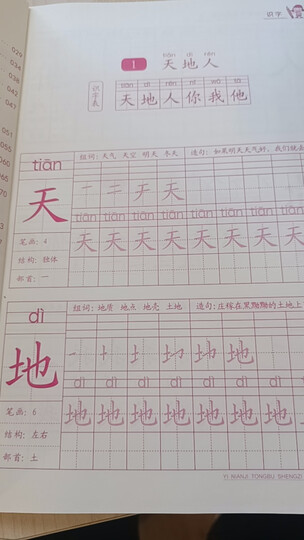 识字
029
043
1
tiān dì rén
天地人
识字表
tiān dì rén nǐ wǒ tā
天地人你我他
tiān
组词：天气 天空 明天 冬天 造句：如果明天天气好，我们就去
天
一 二 于 天
tiān tiān tiān tiān tiān tiān tiān tiān
天 天 天 天 天 天 天 天
笔画：4
结构：独体
部首：一
dì
组词：地质 地点 地壳 土地 造句：庄稼在黑黝黝的土地上
地
地 地
dì dì dì dì dì dì dì
地 地 地 地 地 地 地 地
笔画：6
结构：左右
部首：土
YI NIANJI TONGBU SHENGZI